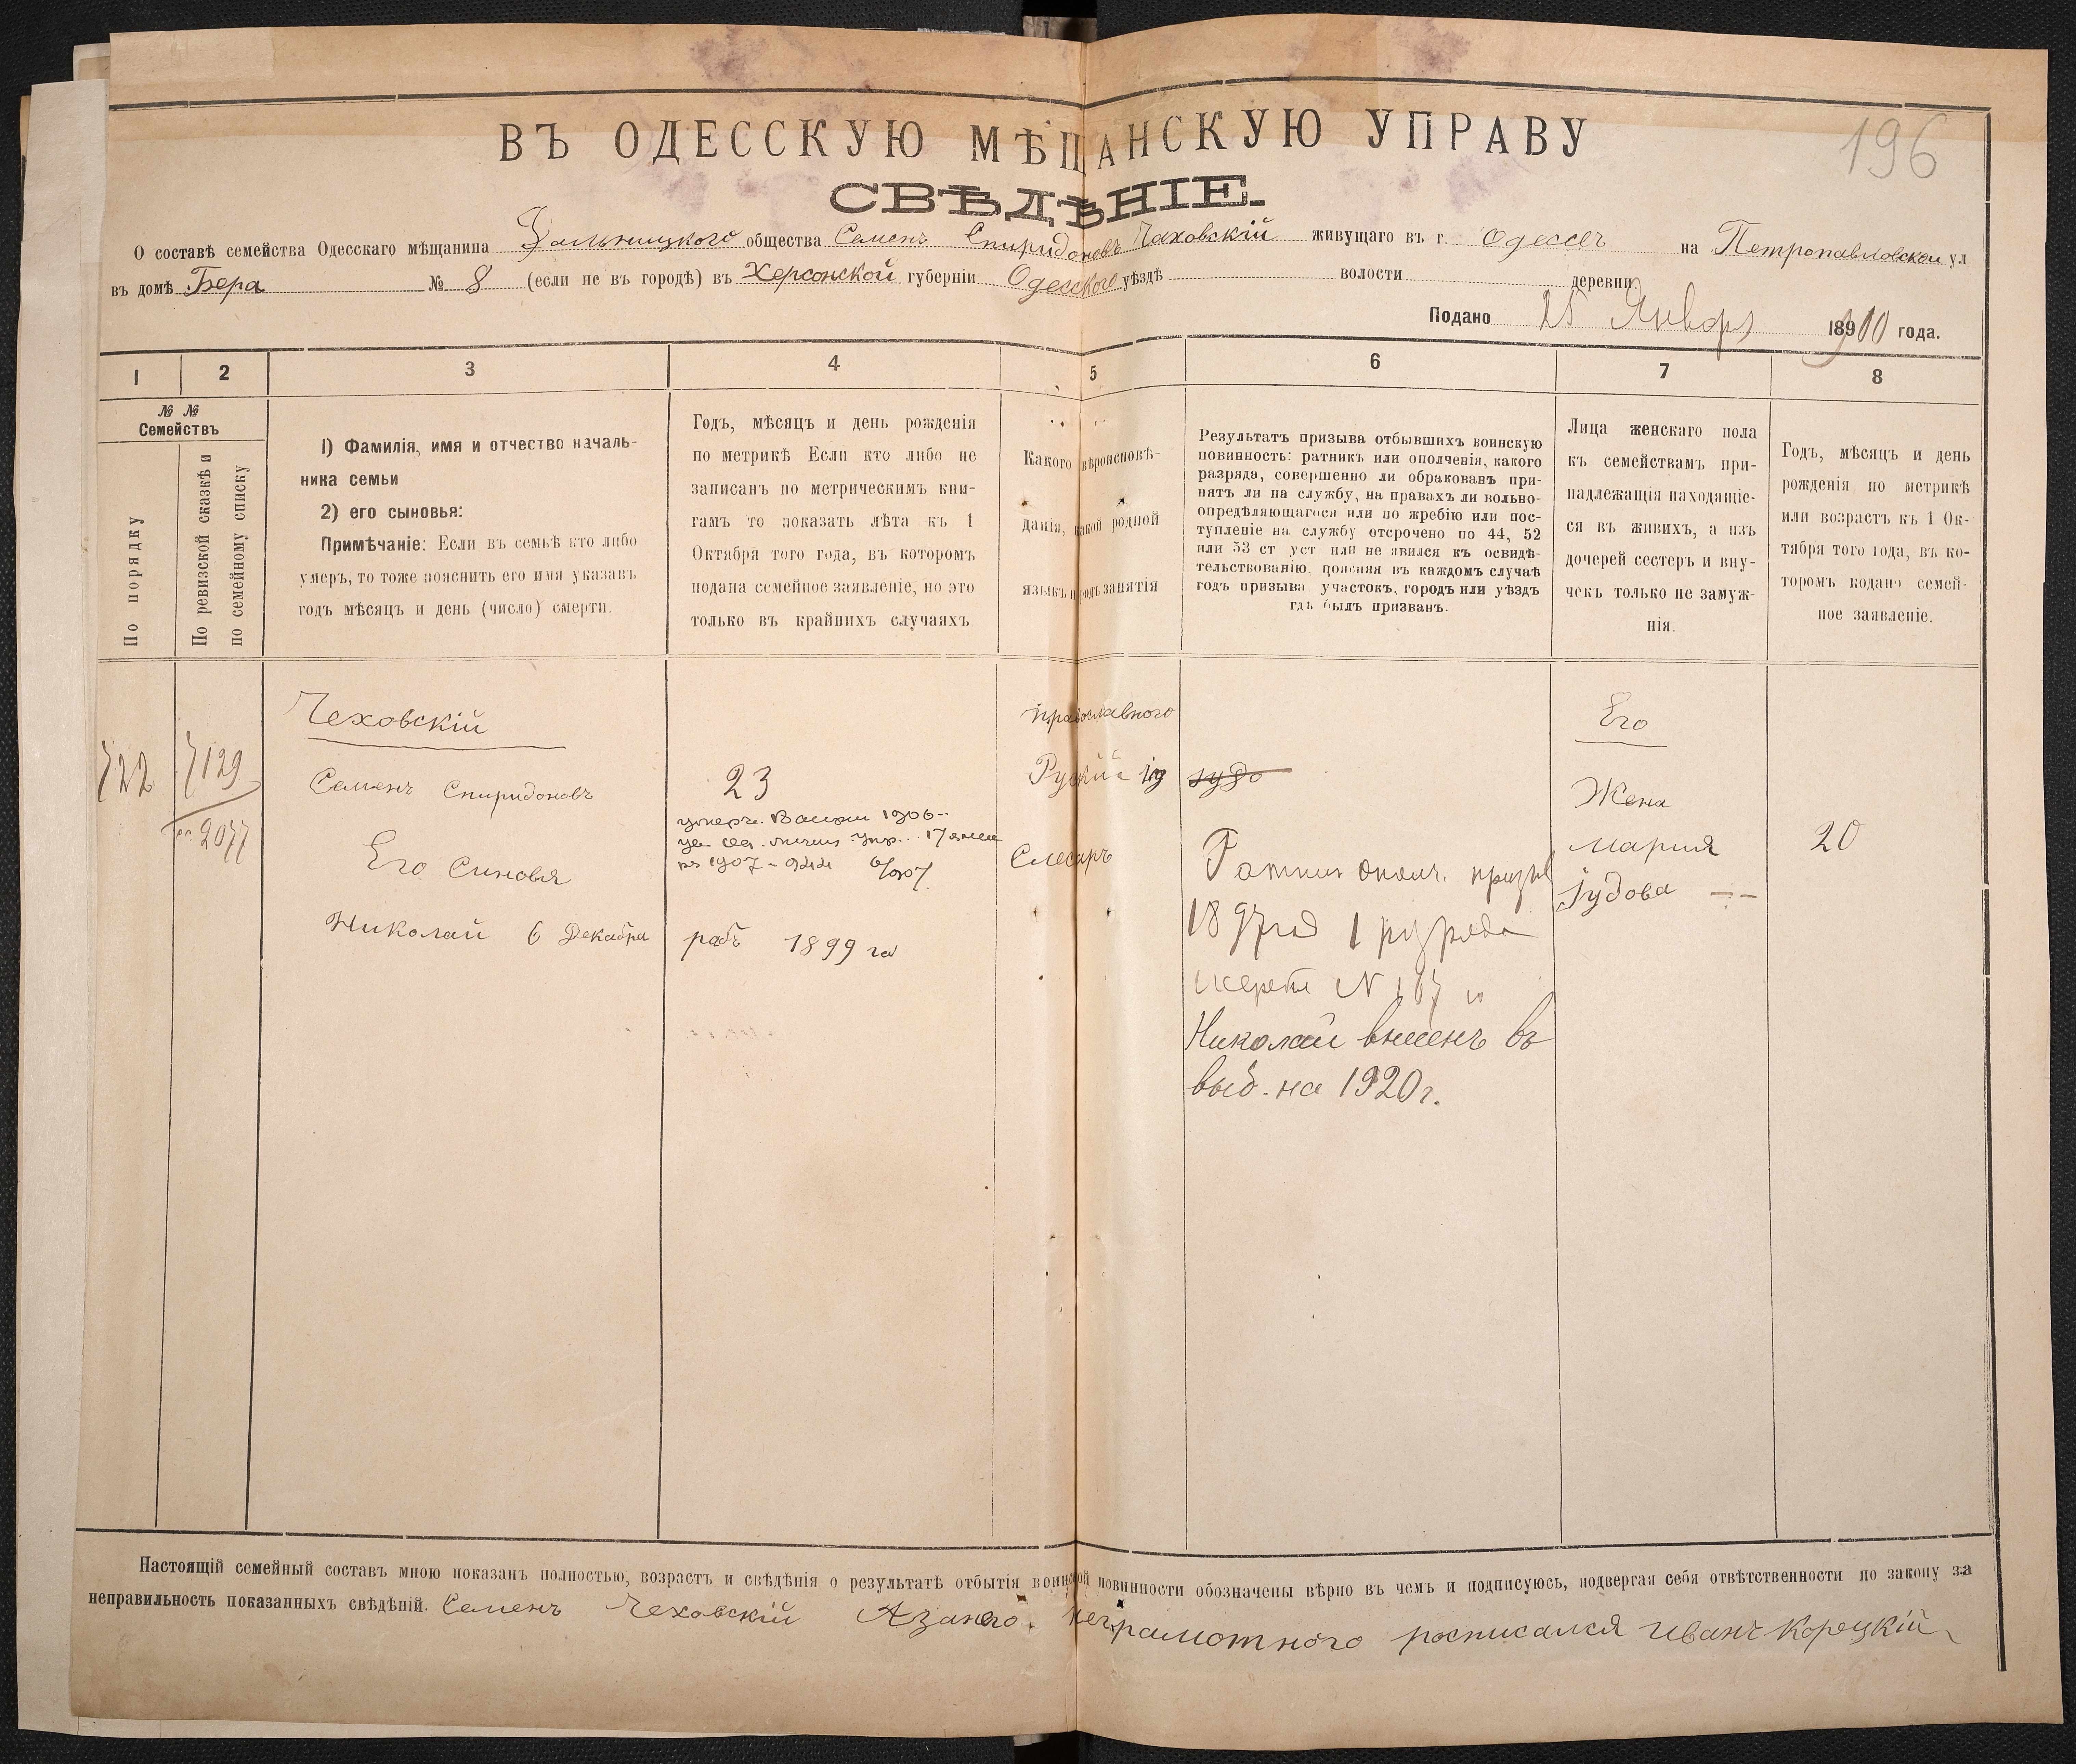 196
ВЪ ОДЕССКУЮ МѢЩАНСКУЮ УПРАВУ
СВѢДѢНІЕ.
О составѣ семейства Одесскаго мѣщанина Дальницкого общества Семенъ Спиридоновъ Чаховскій живущаго въ г. Одессе на Петропавловской ул
въ домѣ Бера № 8 (если не въ городѣ) въ Херсонской губерніи Одесского уѣздѣ волости деревни
Подано 25 Января 1900 года.
1 2 3 4 5 6 7 8
№ №
Семействъ
По порядку
По ревизской сказкѣ и
по семейному списку
1) Фамилія, имя и отчество началь-
ника семьи
2) его сыновья:
Примѣчаніе: Если въ семьѣ кто либо
умеръ, то тоже пояснить его имя указавъ
годъ мѣсяцъ и день (число) смерти.
Годъ, мѣсяцъ и день рожденія
по метрикѣ Если кто либо не
записанъ по метрическимъ кни-
гамъ то показать лѣта къ 1
Октября того года, въ которомъ
подана семейное заявленіе, но это
только въ крайнихъ случаяхъ
Какого вѣроисповѣ-
данія, какой родной
языкъ и родъ занятія
Результатъ призыва отбывшихъ воинскую
повинность: ратникъ или ополченія, какого
разряда, совершенно ли обракованъ при-
нятъ ли на службу, на правахъ ли вольно-
опредѣляющагося или по жребію или пос-
тупленіе на службу отсрочено по 44, 52
или 53 ст уст или не явился къ освидѣ-
тельствованію. поясняя въ каждомъ случаѣ
годъ призыва участокъ, городъ или уѣздъ
гдѣ былъ призванъ.
Лица женскаго пола
къ семействамъ при-
надлежащія находящіе-
ся въ живихъ, а изъ
дочерей сестеръ и вну-
чекъ только не замуж-
нія.
Годъ, мѣсяцъ и день
рожденія по метрикѣ
или возрастъ къ 1 Ок-
тября того года, въ ко-
торомъ подано семей-
ное заявленіе.
722
7129
2077
Чеховскій
Семенъ Спиридоновъ
Его Синовья
Николай 6 Декабра
23
1906
17
1907 - 944
6/907
раб 1899 го
православного
Руский
Слесарь
призыв
1897 год 1 разряда
жереб N 167
Николай внесенъ въ
выб. на 1920 г.
Его
Жена
мария
Іудова
20
Настоящій семейный составъ мною показанъ полностью, возрастъ и свѣдѣнія о результатѣ отбытія воинской повинности обозначены вѣрно въ чемъ и подписуюсь, подвергая себя отвѣтственности по закону за
неправильность показанныхъ свѣдѣній. Семенъ Чеховскій Азанего. неграмотного росписался Иванъ Корецкій